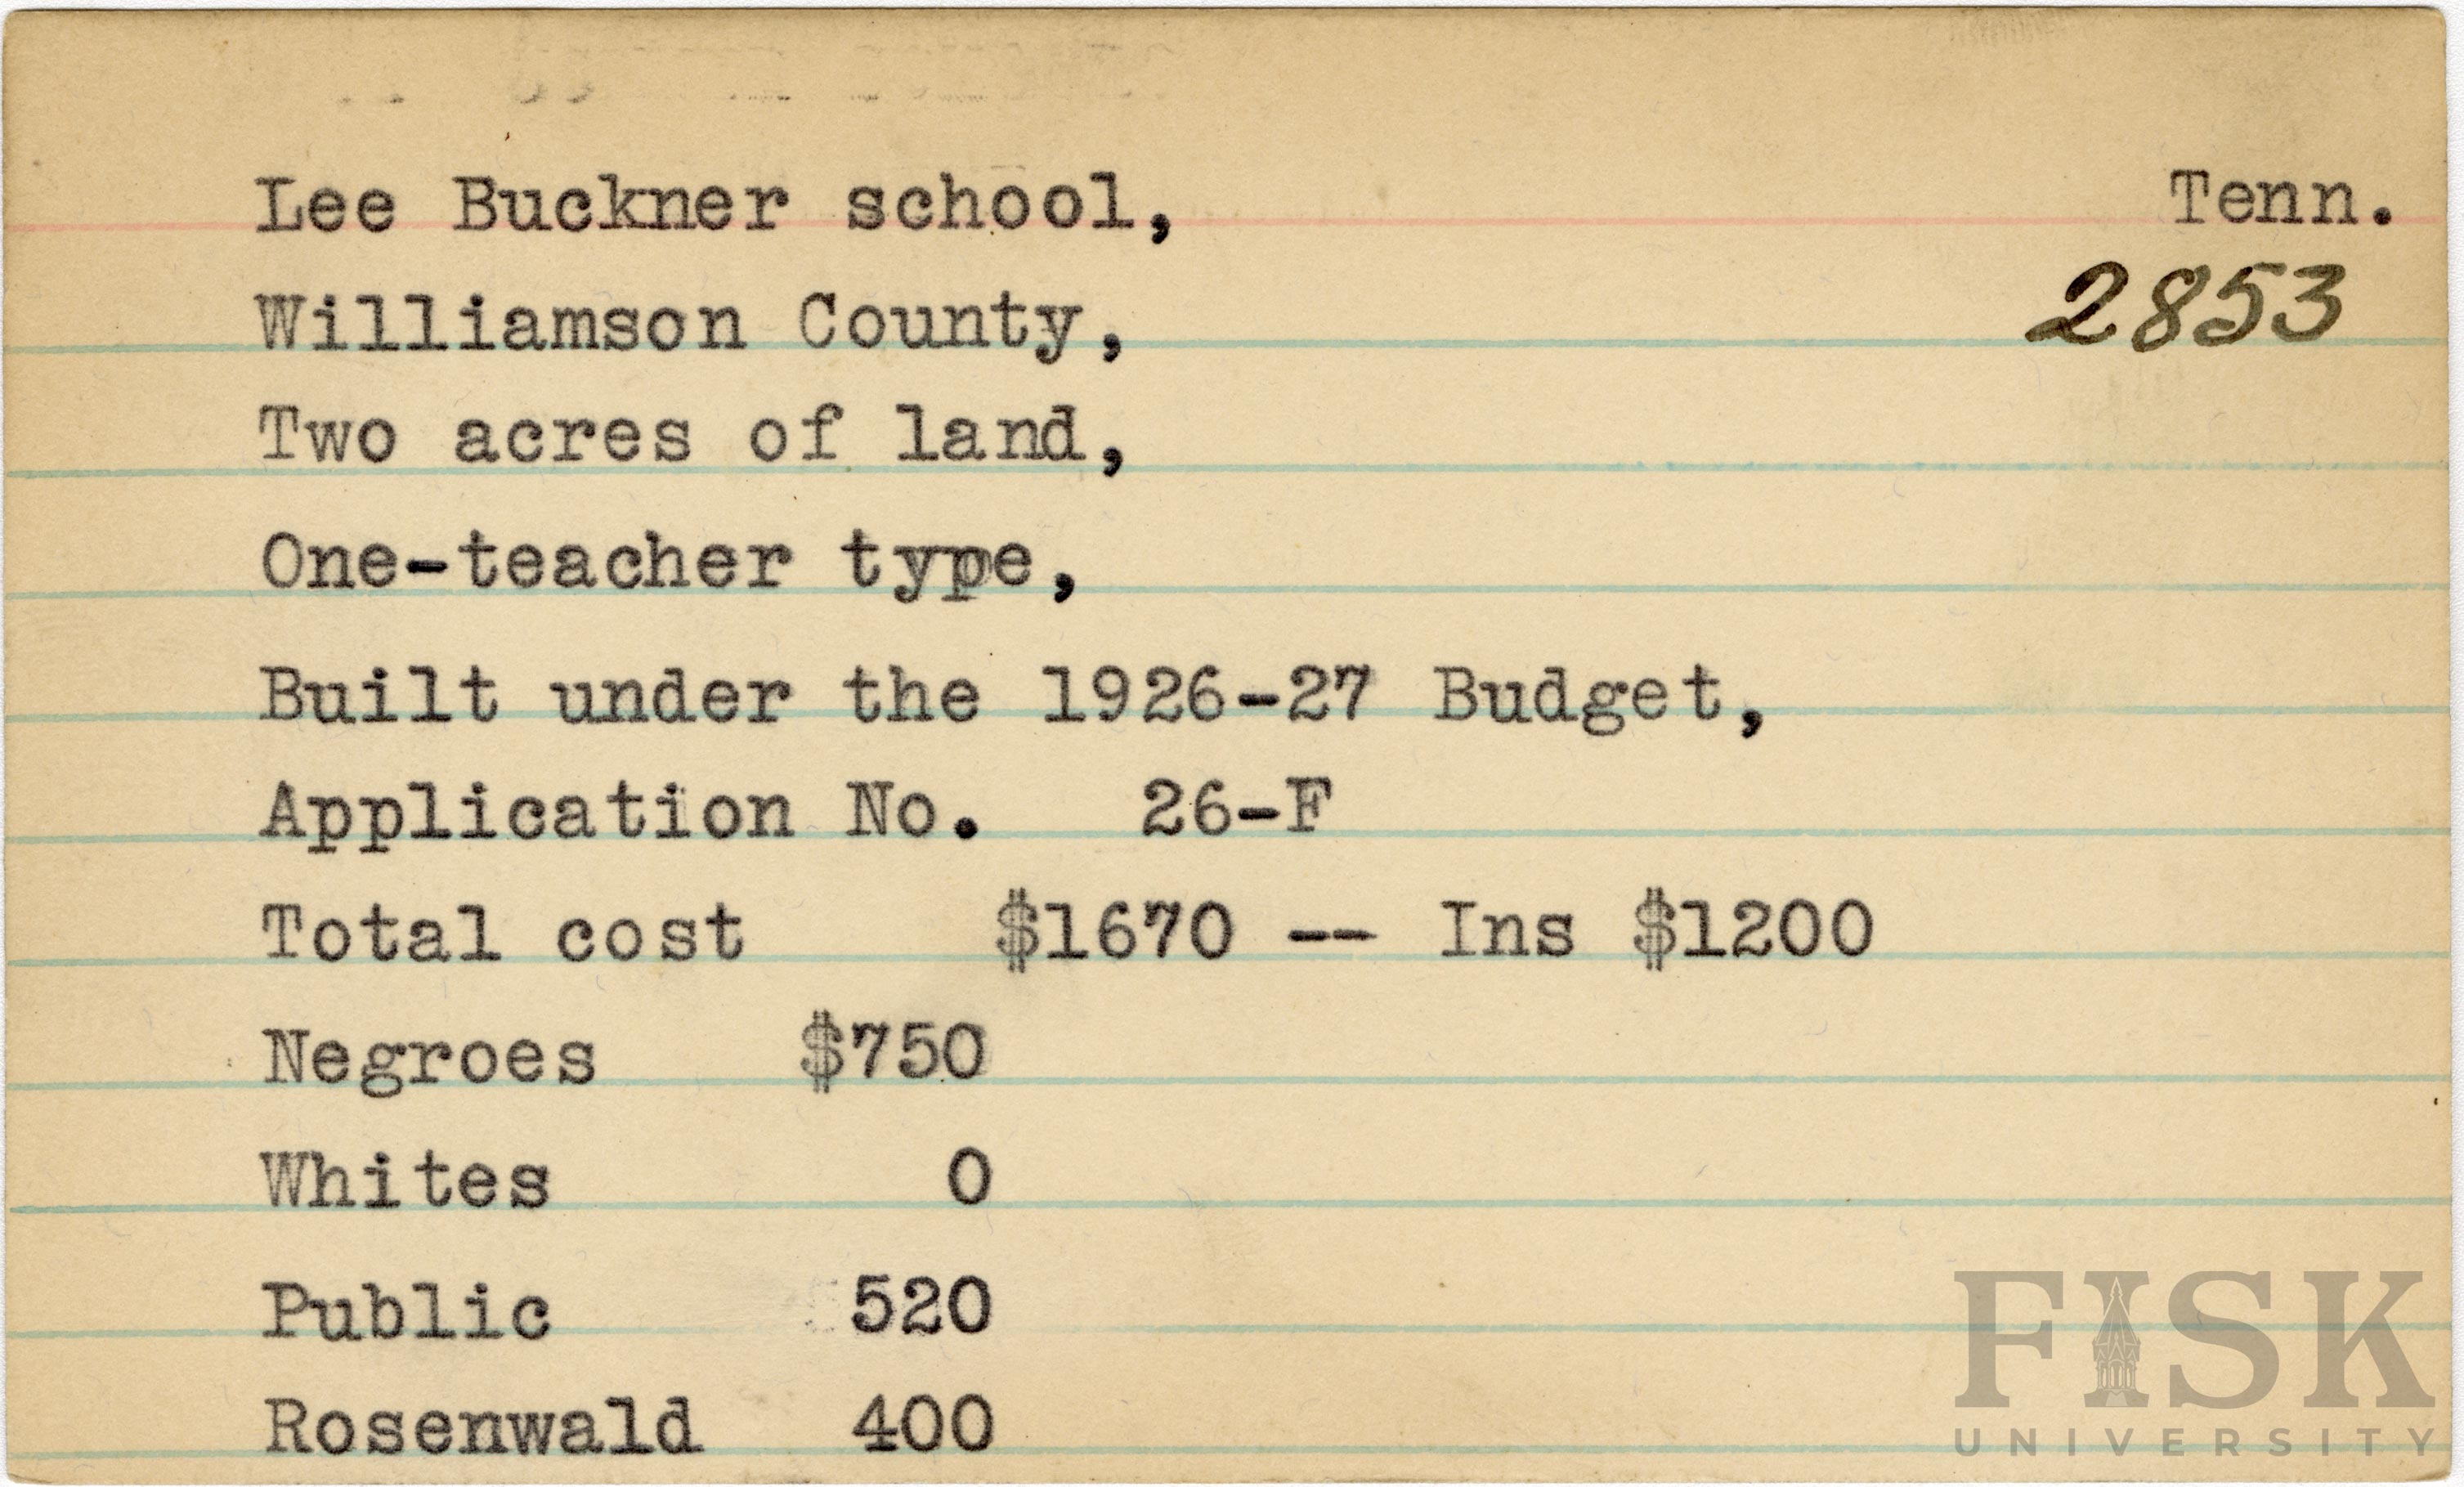 Lee Buckner school, Tenn.
2853
Williamson County,
Two acres of land,
One-teacher type,
Built under the 1926-27 Budget,
Application No. 26-F
Total cost $1670 -- Ins $1200
Negroes $750
Whites 0
Public 520
Rosenwald 400
FISK
UNIVERSITY